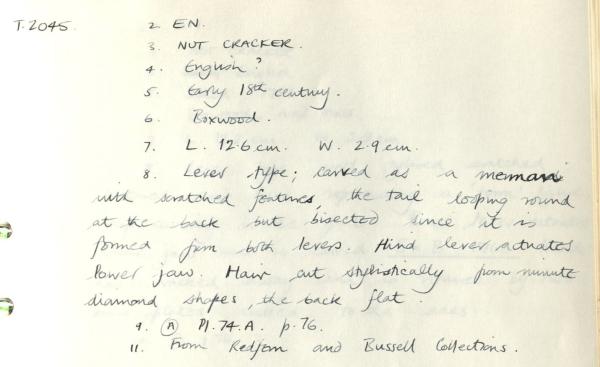 T.2045. 2. EN.
3. NUT CRACKER.
4. English?
5. Early 18th century.
6. Boxwood.
7. L. 12.6cm. W. 2.9cm.
8. Lever type; carved as a merman
with scratched features, the tail looping round
at the back but bisected since it is
formed from both levers. Hind lever actuates
lower jaw. Hair cut stylistically from minute
diamond shapes, the back flat.
9. (A) Pl.74.A. p.76.
11. From Redfern and Bussell Collections.